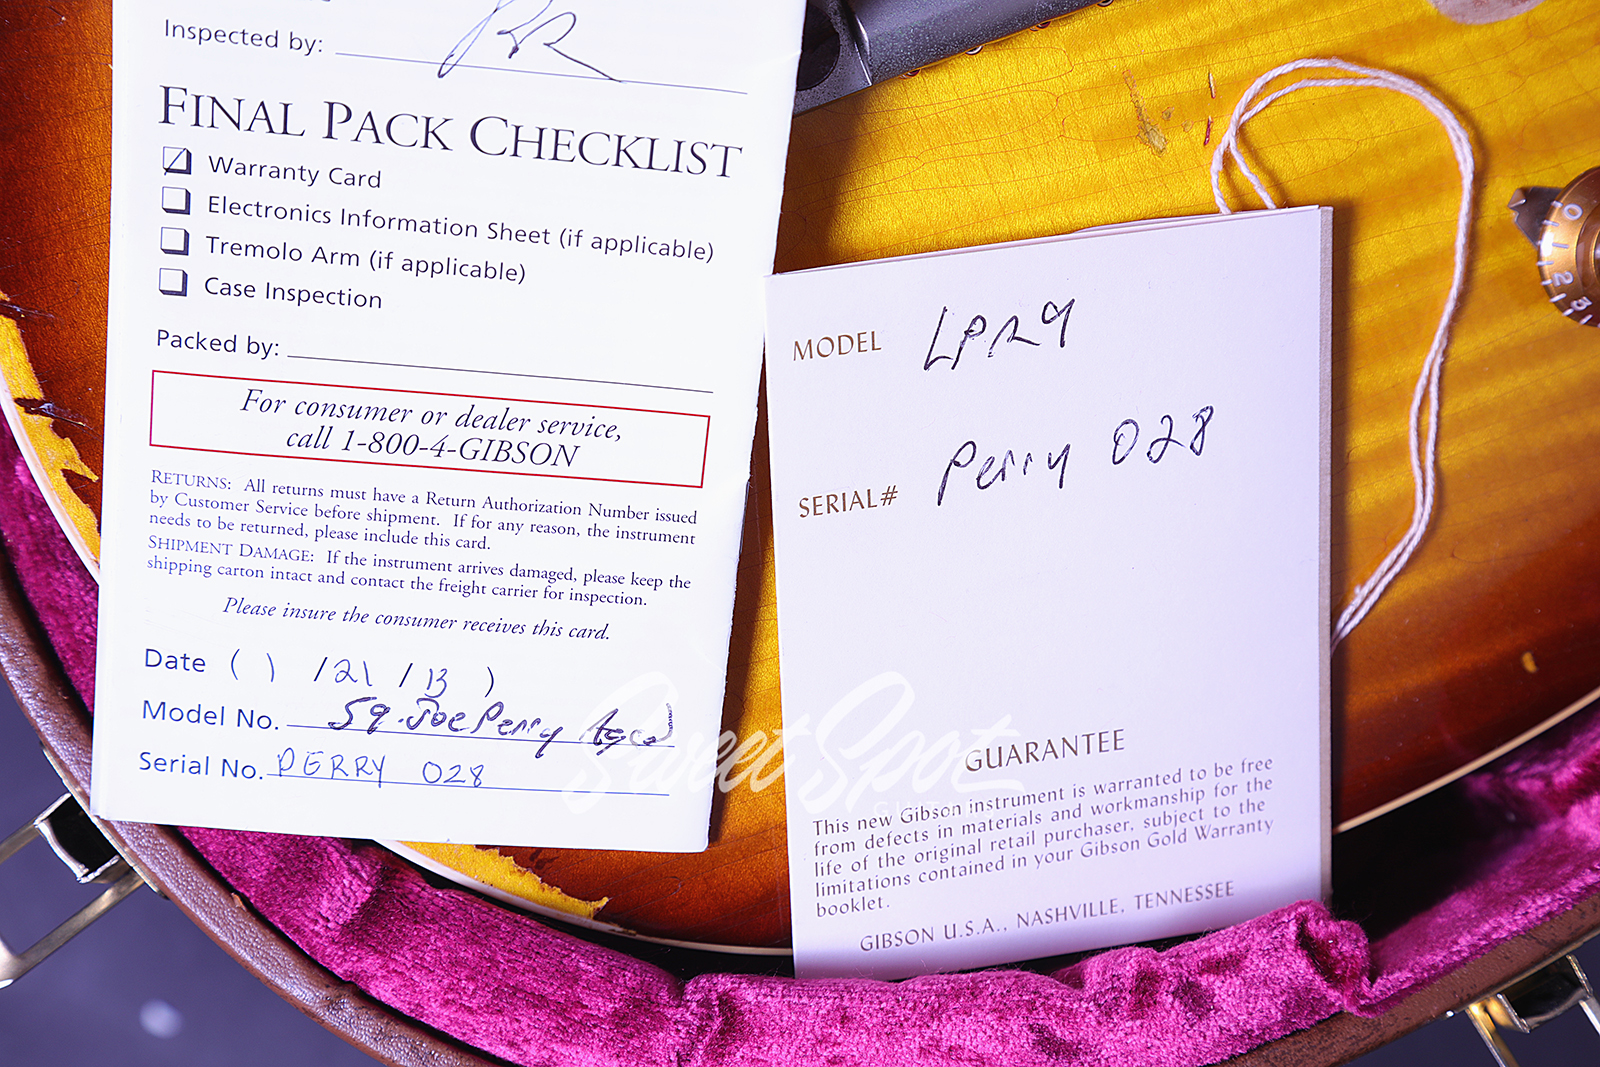 Inspected by:
FINAL PACK CHECKLIST
Warranty Card
Electronics Information Sheet (if applicable)
Tremolo Arm (if applicable)
Case Inspection
Packed by:
For consumer or dealer service,
call 1-800-4-GIBSON
RETURNS: All returns must have a Return Authorization Number issued
by Customer Service before shipment. If for any reason, the instrument
needs to be returned, please include this card.
SHIPMENT DAMAGE: If the instrument arrives damaged, please keep the
shipping carton intact and contact the freight carrier for inspection.
Please insure the consumer receives this card.
Date ( ) /21 /13 )
Model No. 59 Joe Perry Aged
Serial No. PERRY 028
MODEL LPR9
SERIAL# Perry 028
GUARANTEE
This new Gibson instrument is warranted to be free
from defects in materials and workmanship for the
life of the original retail purchaser, subject to the
limitations contained in your Gibson Gold Warranty
booklet.
GIBSON U.S.A., NASHVILLE, TENNESSEE
Sweet Spot
0
2
3